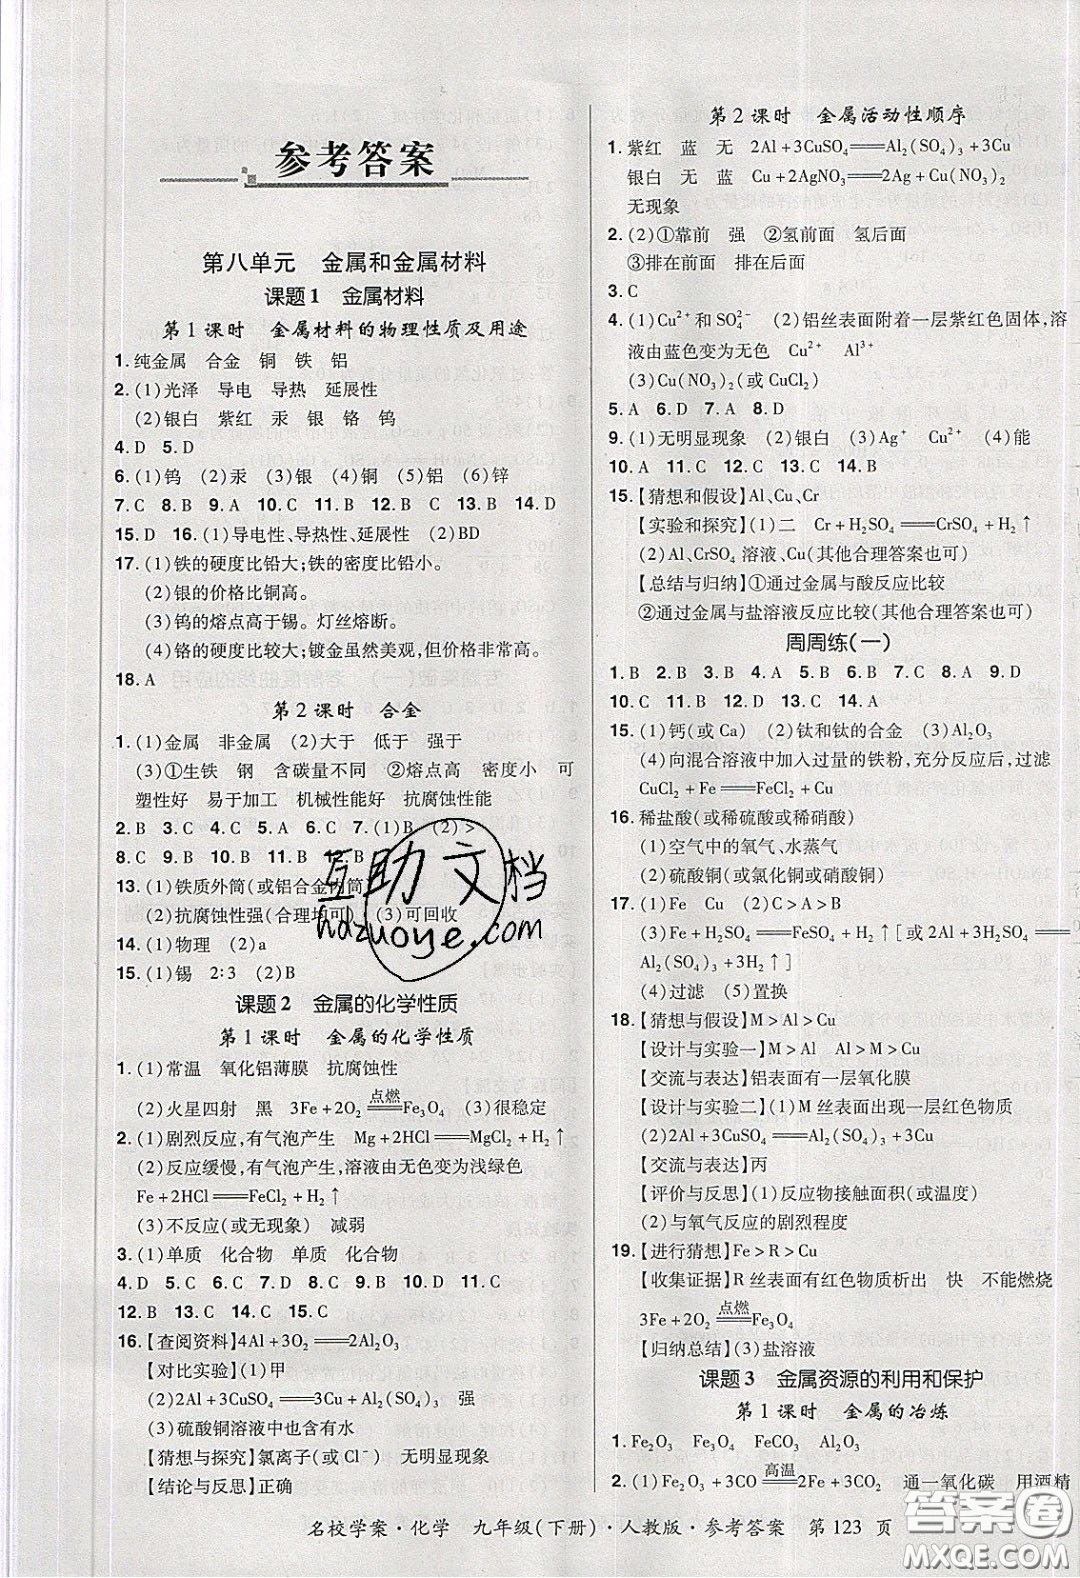 参考答案
第八单元 金属和金属材料
课题1 金属材料
第1课时 金属材料的物理性质及用途
1.纯金属 合金 铜 铁 铝
2.(1)光泽 导电 导热 延展性
(2)银白 紫红 汞 银 铬 钨
4.D 5.D
6.(1)钨 (2)汞 (3)银 (4)铜 (5)铝 (6)锌
7.C 8.B 9.A 10.C 11.C 12.B 13.B 14.D
15.D 16.(1)导电性、导热性、延展性 (2)BD
17.(1)铁的硬度比铅大;铁的密度比铅小。
(2)银的价格比铜高。
(3)钨的熔点高于锡。灯丝熔断。
(4)铬的硬度比较大;镀金虽然美观,但价格高。
18.A
第2课时 合金
1.(1)金属 非金属 (2)大于 低于 强于
(3)①生铁 钢 含碳量不同 ②熔点高 密度小 可
塑性好 易于加工 机械性能好 抗腐蚀性能
2.B 3.C 4.C 5.A 6.C 7.(1)B (2)>
8.C 9.B 10.B 11.B 12.B
13.(1)铁质外筒(或铝合金内筒)
(2)抗腐蚀性强(合理均可) (3)可回收
14.(1)物理 (2)a
15.(1)锡 2:3 (2)B
课题2 金属的化学性质
第1课时 金属的化学性质
1.(1)常温 氧化铝薄膜 抗腐蚀性
(2)火星四射 黑 3Fe+2O₂ 点燃══ Fe₃O₄ (3)很稳定
2.(1)剧烈反应,有气泡产生 Mg+2HCl══MgCl₂+H₂↑
(2)反应缓慢,有气泡产生,溶液由无色变为浅绿色
Fe+2HCl══FeCl₂+H₂↑
(3)不反应(或无现象) 减弱
3.(1)单质 化合物 单质 化合物
4.D 5.A 6.D 7.D 8.D 9.D 10.D 11.C
12.B 13.C 14.C 15.C
16.【查阅资料】4Al+3O₂══2Al₂O₃
【对比实验】(1)甲
(2)2Al+3CuSO₄══3Cu+Al₂(SO₄)₃ 强
(3)硫酸铜溶液中也含有水
【猜想与探究】氯离子(或Cl⁻) 无明显现象
【结论与反思】正确
第2课时 金属活动性顺序
1.紫红 蓝 无 2Al+3CuSO₄══Al₂(SO₄)₃+3Cu
银白 无 蓝 Cu+2AgNO₃══2Ag+Cu(NO₃)₂
无现象
2.(2)①靠前 强 ②氢前面 氢后面
③排在前面 排在后面
3.C
4.(1)Cu²⁺和SO₄²⁻ (2)铝丝表面附着一层紫红色固体,溶
液由蓝色变为无色 Cu²⁺ Al³⁺
(3)Cu(NO₃)₂(或CuCl₂)
5.A 6.D 7.A 8.D
9.(1)无明显现象 (2)银白 (3)Ag⁺ Cu²⁺ (4)能
10.A 11.C 12.C 13.D 14.C
15.【猜想和假设】Al、Cu、Cr
【实验和探究】(1)二 Cr+H₂SO₄══CrSO₄+H₂↑
(2)Al、CrSO₄溶液、Cu(其他合理答案也可)
【总结与归纳】①通过金属与酸反应比较
②通过金属与盐溶液反应比较(其他合理答案也可)
周周练(一)
1.B 2.B 3.D 4.A 5.C 6.B 7.A 8.A 9.D
10.D 11.C 12.D 13.C 14.A
15.(1)钙(或Ca) (2)钛和钛的合金 (3)Al₂O₃
(4)向混合溶液中加入过量的铁粉,充分反应后,过滤
CuCl₂+Fe══FeCl₂+Cu
16.稀盐酸(或稀硫酸或稀硝酸)
(1)空气中的氧气、水蒸气
(2)硫酸铜(或氯化铜或硝酸铜)
17.(1)Fe Cu (2)C>A>B
(3)Fe+H₂SO₄══FeSO₄+H₂↑[或2Al+3H₂SO₄══
Al₂(SO₄)₃+3H₂↑]
(4)过滤 (5)置换
18.【猜想与假设】M>Al>Cu
【设计与实验一】M>Al Al>M>Cu
【交流与表达】铝表面有一层氧化膜
【设计与实验二】(1)M丝表面出现一层红色物质
(2)2Al+3CuSO₄══Al₂(SO₄)₃+3Cu
【交流与表达】丙
【评价与反思】(1)反应物接触面积(或温度)
(2)与氧气反应的剧烈程度
19.【进行猜想】Fe>R>Cu
【收集证据】R丝表面有红色物质析出 快 不能燃烧
3Fe+2O₂ 点燃══ Fe₃O₄
【归纳总结】(3)盐溶液
课题3 金属资源的利用和保护
第1课时 金属的冶炼
1.Fe₂O₃ Fe₃O₄ FeCO₃ Al₂O₃
2.(1)Fe₂O₃+3CO 高温══ 2Fe+3CO₂ 通一氧化碳 用酒精
名校学案·化学 九年级(下册)·人教版·参考答案 第123页
互助文档
hdzuoye.com
答案圈
MXQE.COM